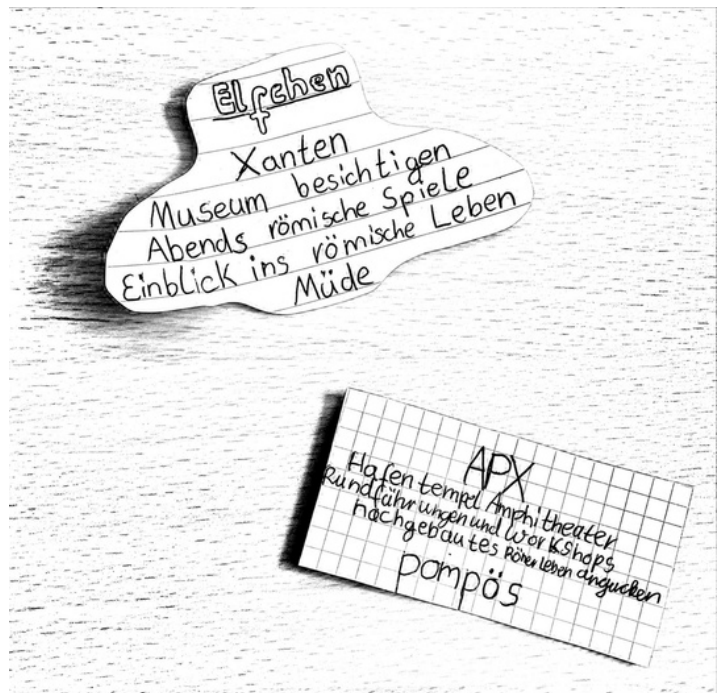 Elfchen
Xanten
Museum besichtigen
Abends römische Spiele
Einblick ins römische Leben
Müde
APX
Hafentempel Amphitheater
Rundführungen und Workshops
nachgebautes leben angucken
pompös